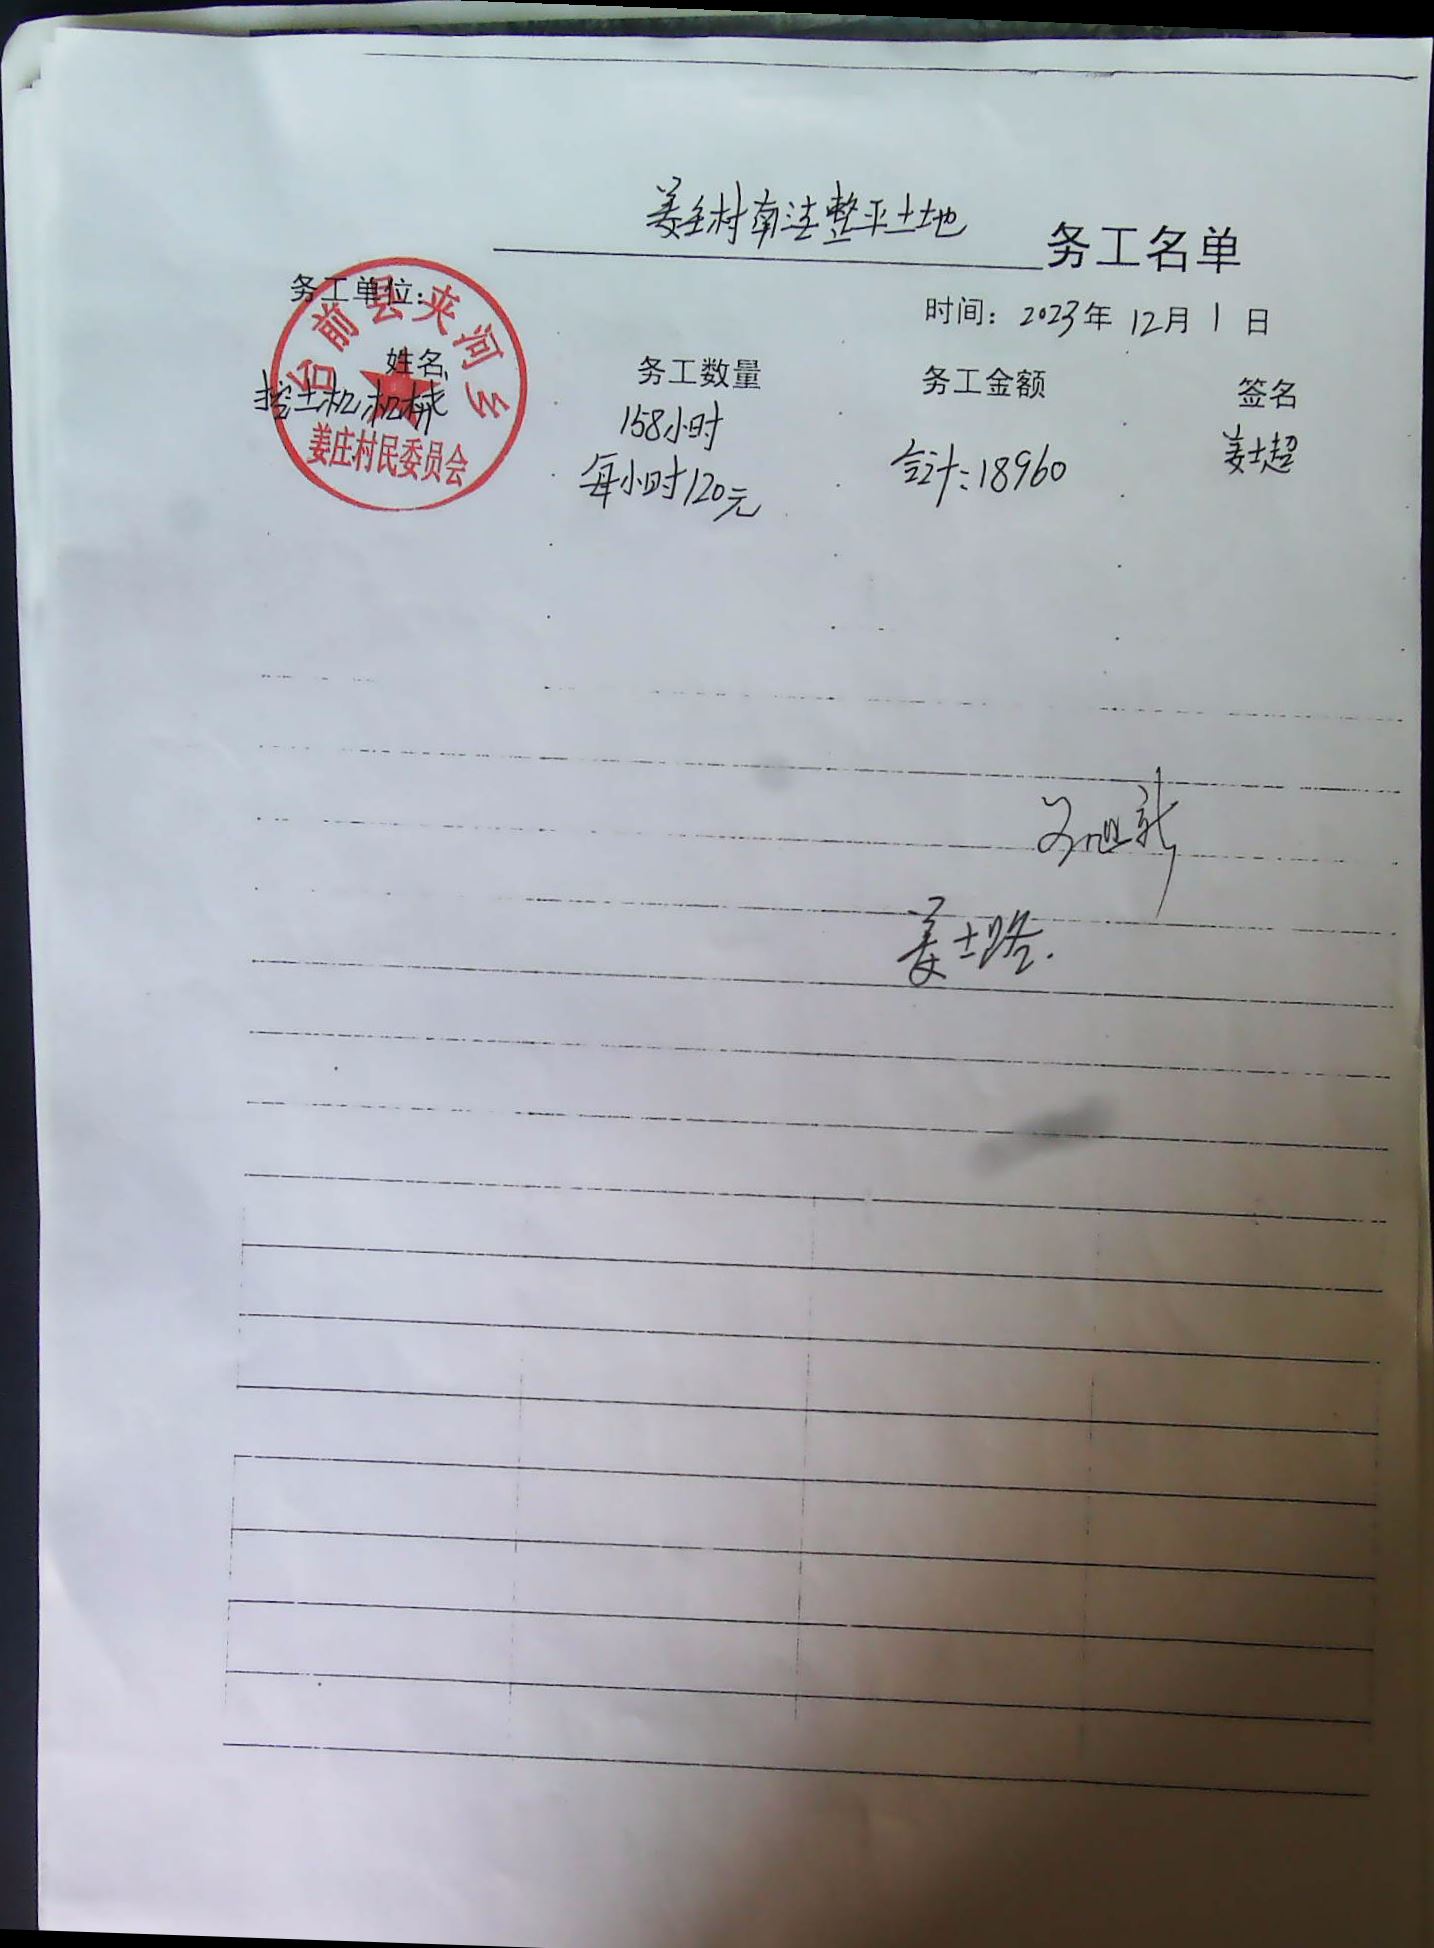 姜庄村南洼整平土地 务工名单
务工单位：
时间：2023年12月1日
台前县夹河乡
姜庄村民委员会
姓名 务工数量 务工金额 签名
挖土机机械 158小时 姜士超
每小时120元 合计：18960
姜士路.